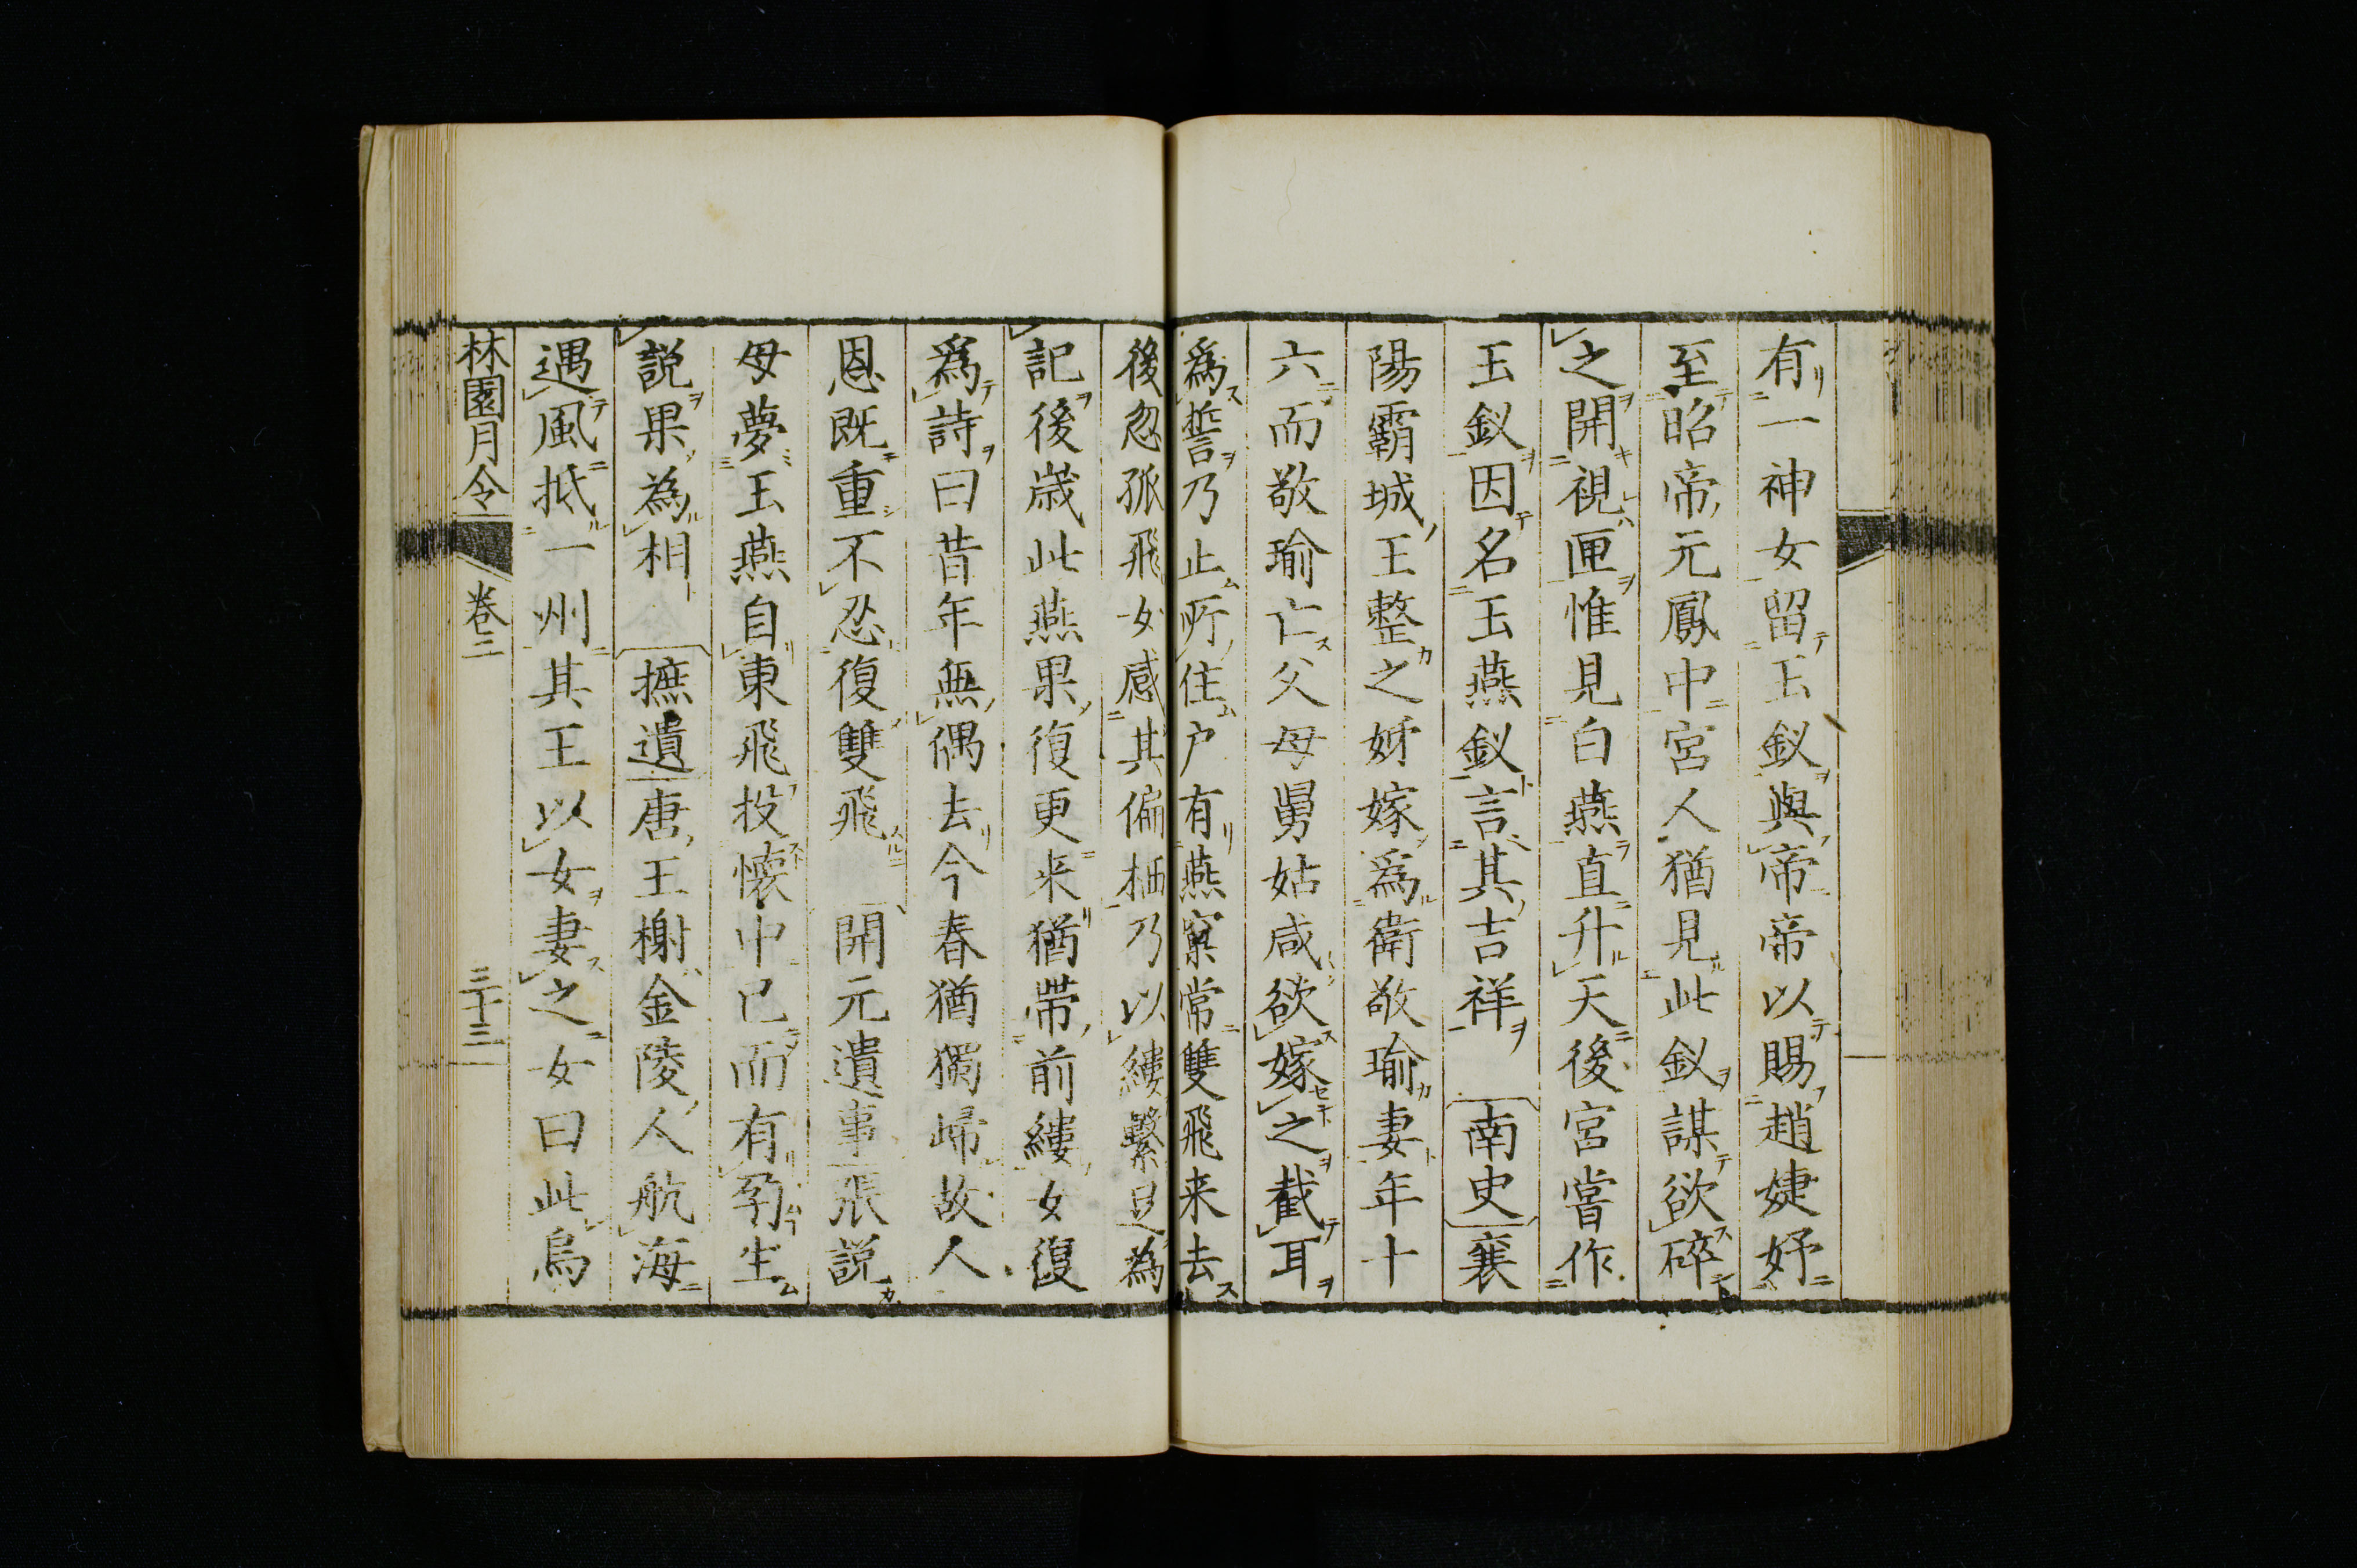 有一神女留玉釵與帝帝以賜趙婕妤
至昭帝元鳳中宮人猶見此釵謀欲碎
之開視匣惟見白燕直升天後宮嘗作
玉釵因名玉燕釵言其吉祥 南史襄
陽霸城王整之姊嫁爲衞敬瑜妻年十
六而敬瑜亡父母舅姑咸欲嫁之截耳
爲誓乃止所住户有燕窠常雙飛来去
後忽孤飛女感其偏栖乃以縷繫足為
記後歳此燕果復更来猶帶前縷女復
爲詩曰昔年無偶去今春猶獨歸故人
恩既重不忍復雙飛 開元遺事張説
母夢玉燕自東飛投懷中已而有孕生
説果為相 摭遺唐王榭金陵人航海
遇風抵一州其王以女妻之女曰此烏
林園月令 卷三 三十三